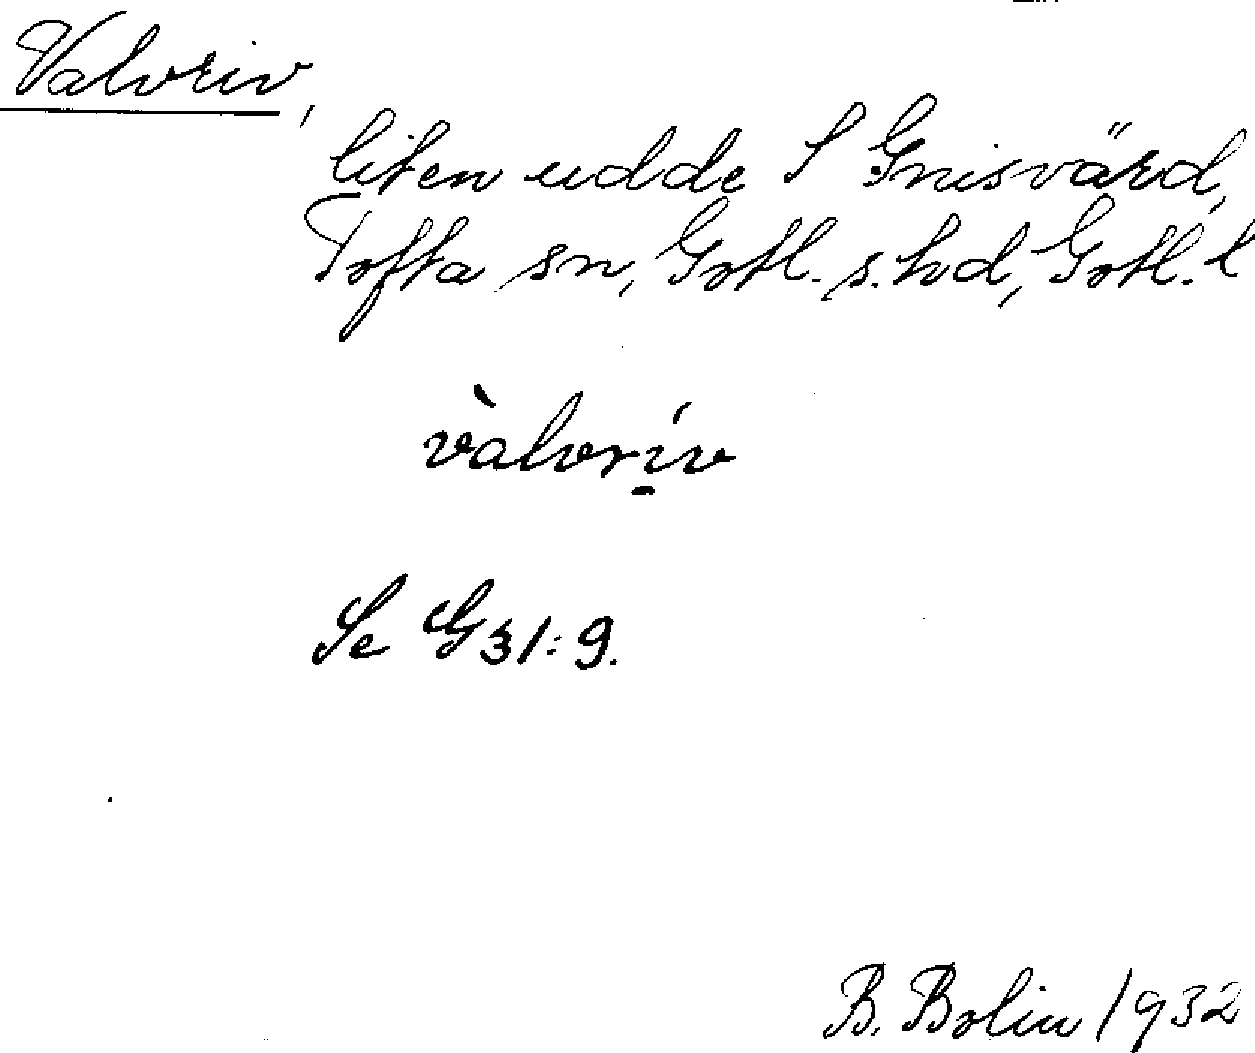 Valvriv,
liten udde S Gnisvärd,
Tofta sn, Gotl. s. hd, Gotl. l
vàlvrív
Se G31:9.
B. Bolin 1932